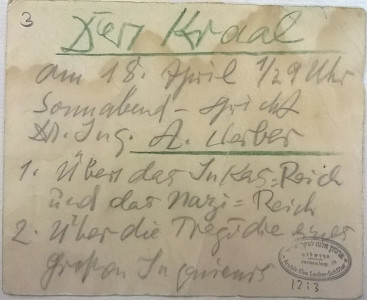 3
Der Kraal
am 18. April 1/29 Uhr
Sonnabend - spricht
Dr. Ing. A.
1. Über das Inkas=Reich
und das Nazi=Reich
2. Über die Tragödie eines
großen Ingenieurs
12:3